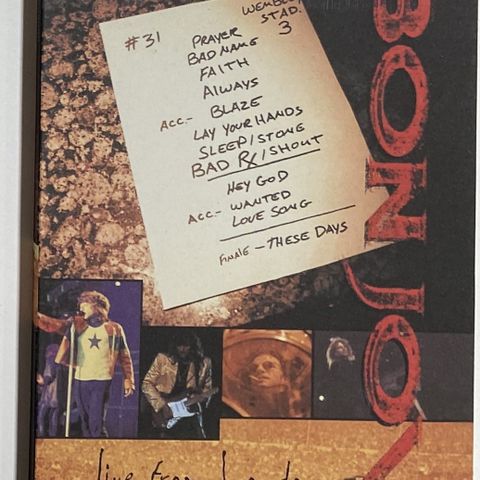 WEMBLEY
STAD.
3
#31
PRAYER
BAD NAME
FAITH
ALWAYS
ACC.- BLAZE
LAY YOUR HANDS
SLEEP/STONE
BAD Rx/SHOUT
HEY GOD
ACC- WANTED
LOVE SONG
FINALE - THESE DAYS
BON JOV
live from London